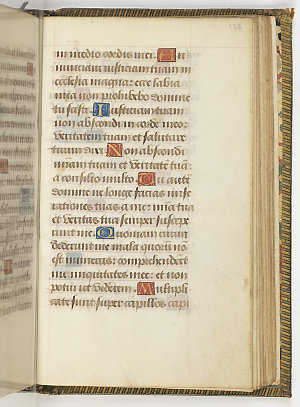 in medio cordis mei. An
nunciaui iusticiam tuam in
ecclesia magna: ecce labia
mea non prohibebo domine
tu scisti. Iusticiam tuam
non abscondi in corde meo:
veritatem tuam et salutare
tuum dixi. Non abscondi
miam tuam et veritate tuã
a consilio multo. Tu aute
domine ne longe facias mise
rationes tuas a me: mia tua
et veritas tua semper suscepe
runt me. Quoniam circun
dederunt me mala quorũ nõ
est numerus: comprehenderũt
me iniquitates mee: et non
potui ut viderem. Multipli
cate sunt super capillos capi